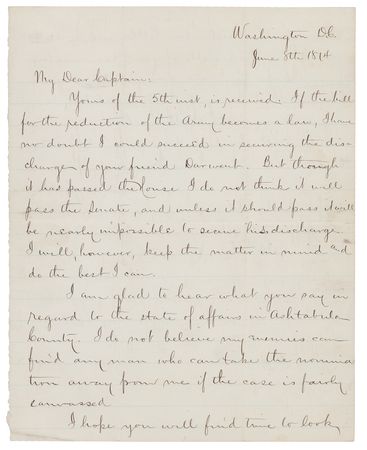 Washington D.C.
June 8th 1874
My Dear Captain:
Yours of the 5th inst, is received. If the bill
for the reduction of the Army becomes a law, I have
no doubt I could succeed in securing the dis-
charge of your friend Darwent. But though
it has passed the House I do not think it will
pass the Senate, and unless it should pass it will
be nearly impossible to secure his discharge.
I will, however, keep the matter in mind and
do the best I can.
I am glad to hear what you say in
regard to the state of affairs in Ashtabula
County. I do not believe my enemies can
find any man who can take the nomina
tion away from me if the case is fairly
canvassed
I hope you will find time to look